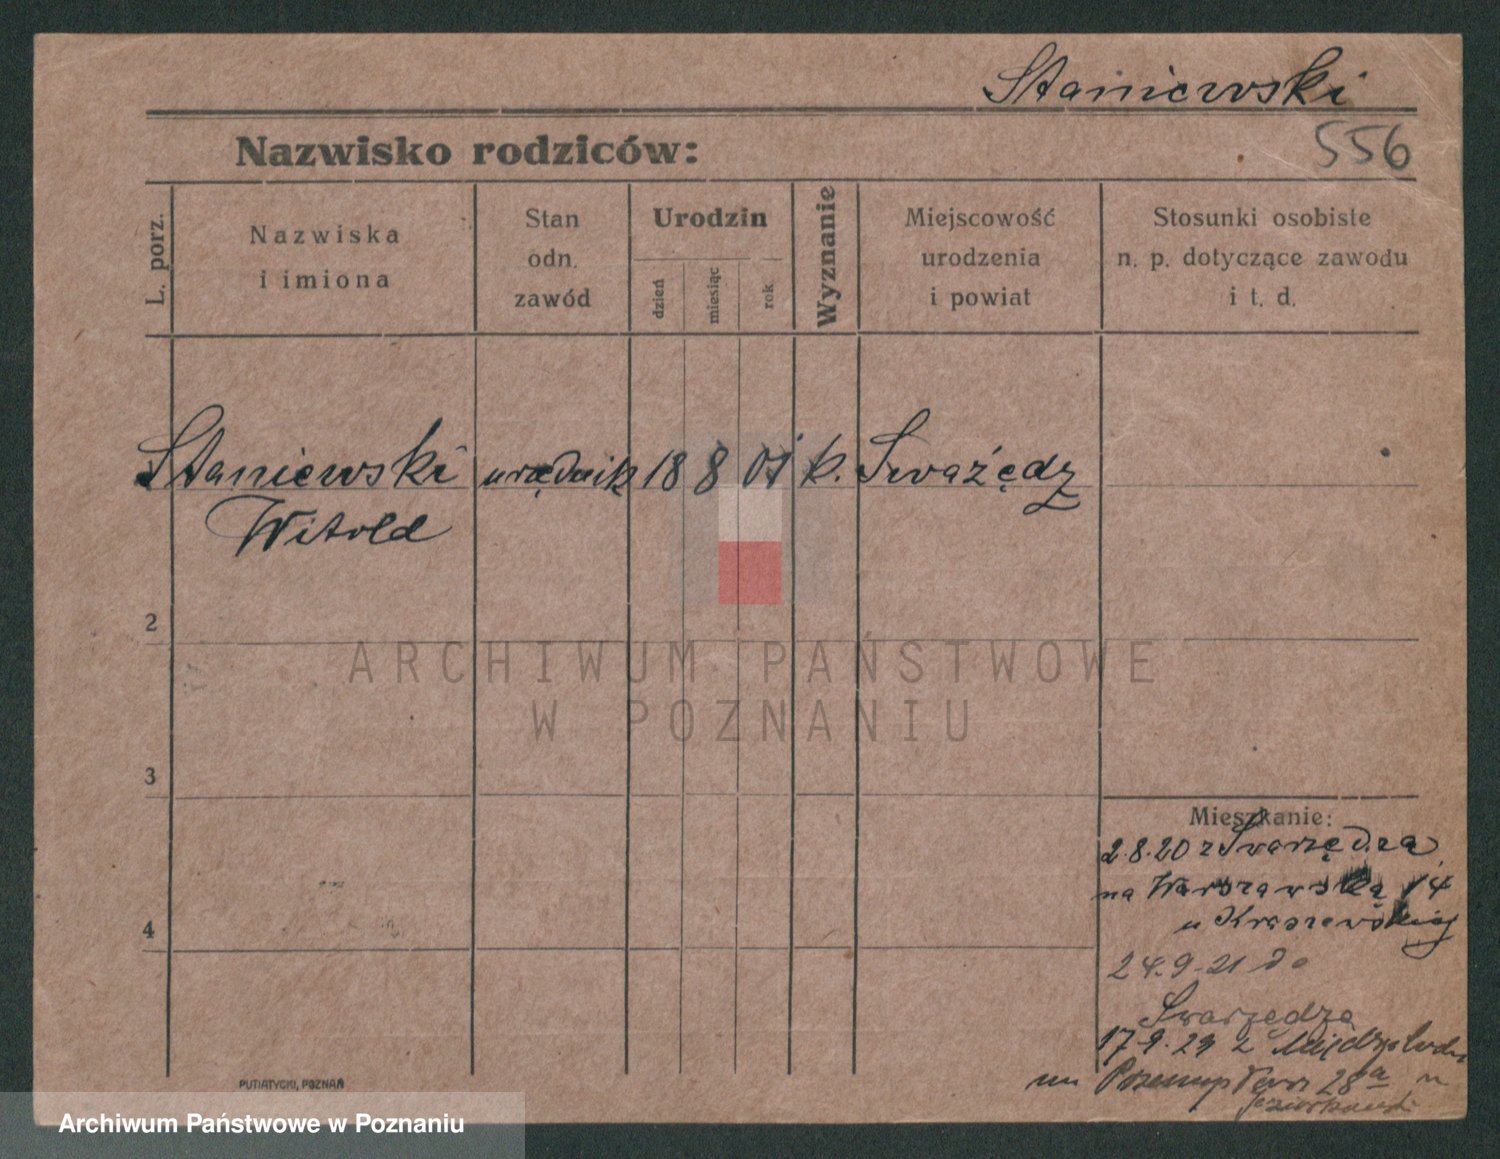 Staniewski
Nazwisko rodziców:
556
L. porz.
Nazwiska
i imiona
Stan
odn.
zawód
Urodzin
dzień
miesiąc
rok
Wyznanie
Miejscowość
urodzenia
i powiat
Stosunki osobiste
n. p. dotyczące zawodu
i t. d.
Staniewski urzędnik 18 8 01 k. Sważędz
Witold
2
ARCHIWUM PAŃSTWOWE
W POZNANIU
3
Mieszkanie:
2.8.20 z Swarzędza
na Warszawską 14
u Kraszewskiej
4
24.9.21 do
Swarzędza
17.9.23 z
28a
PUTIATYCKI, POZNAŃ
Archiwum Państwowe w Poznaniu